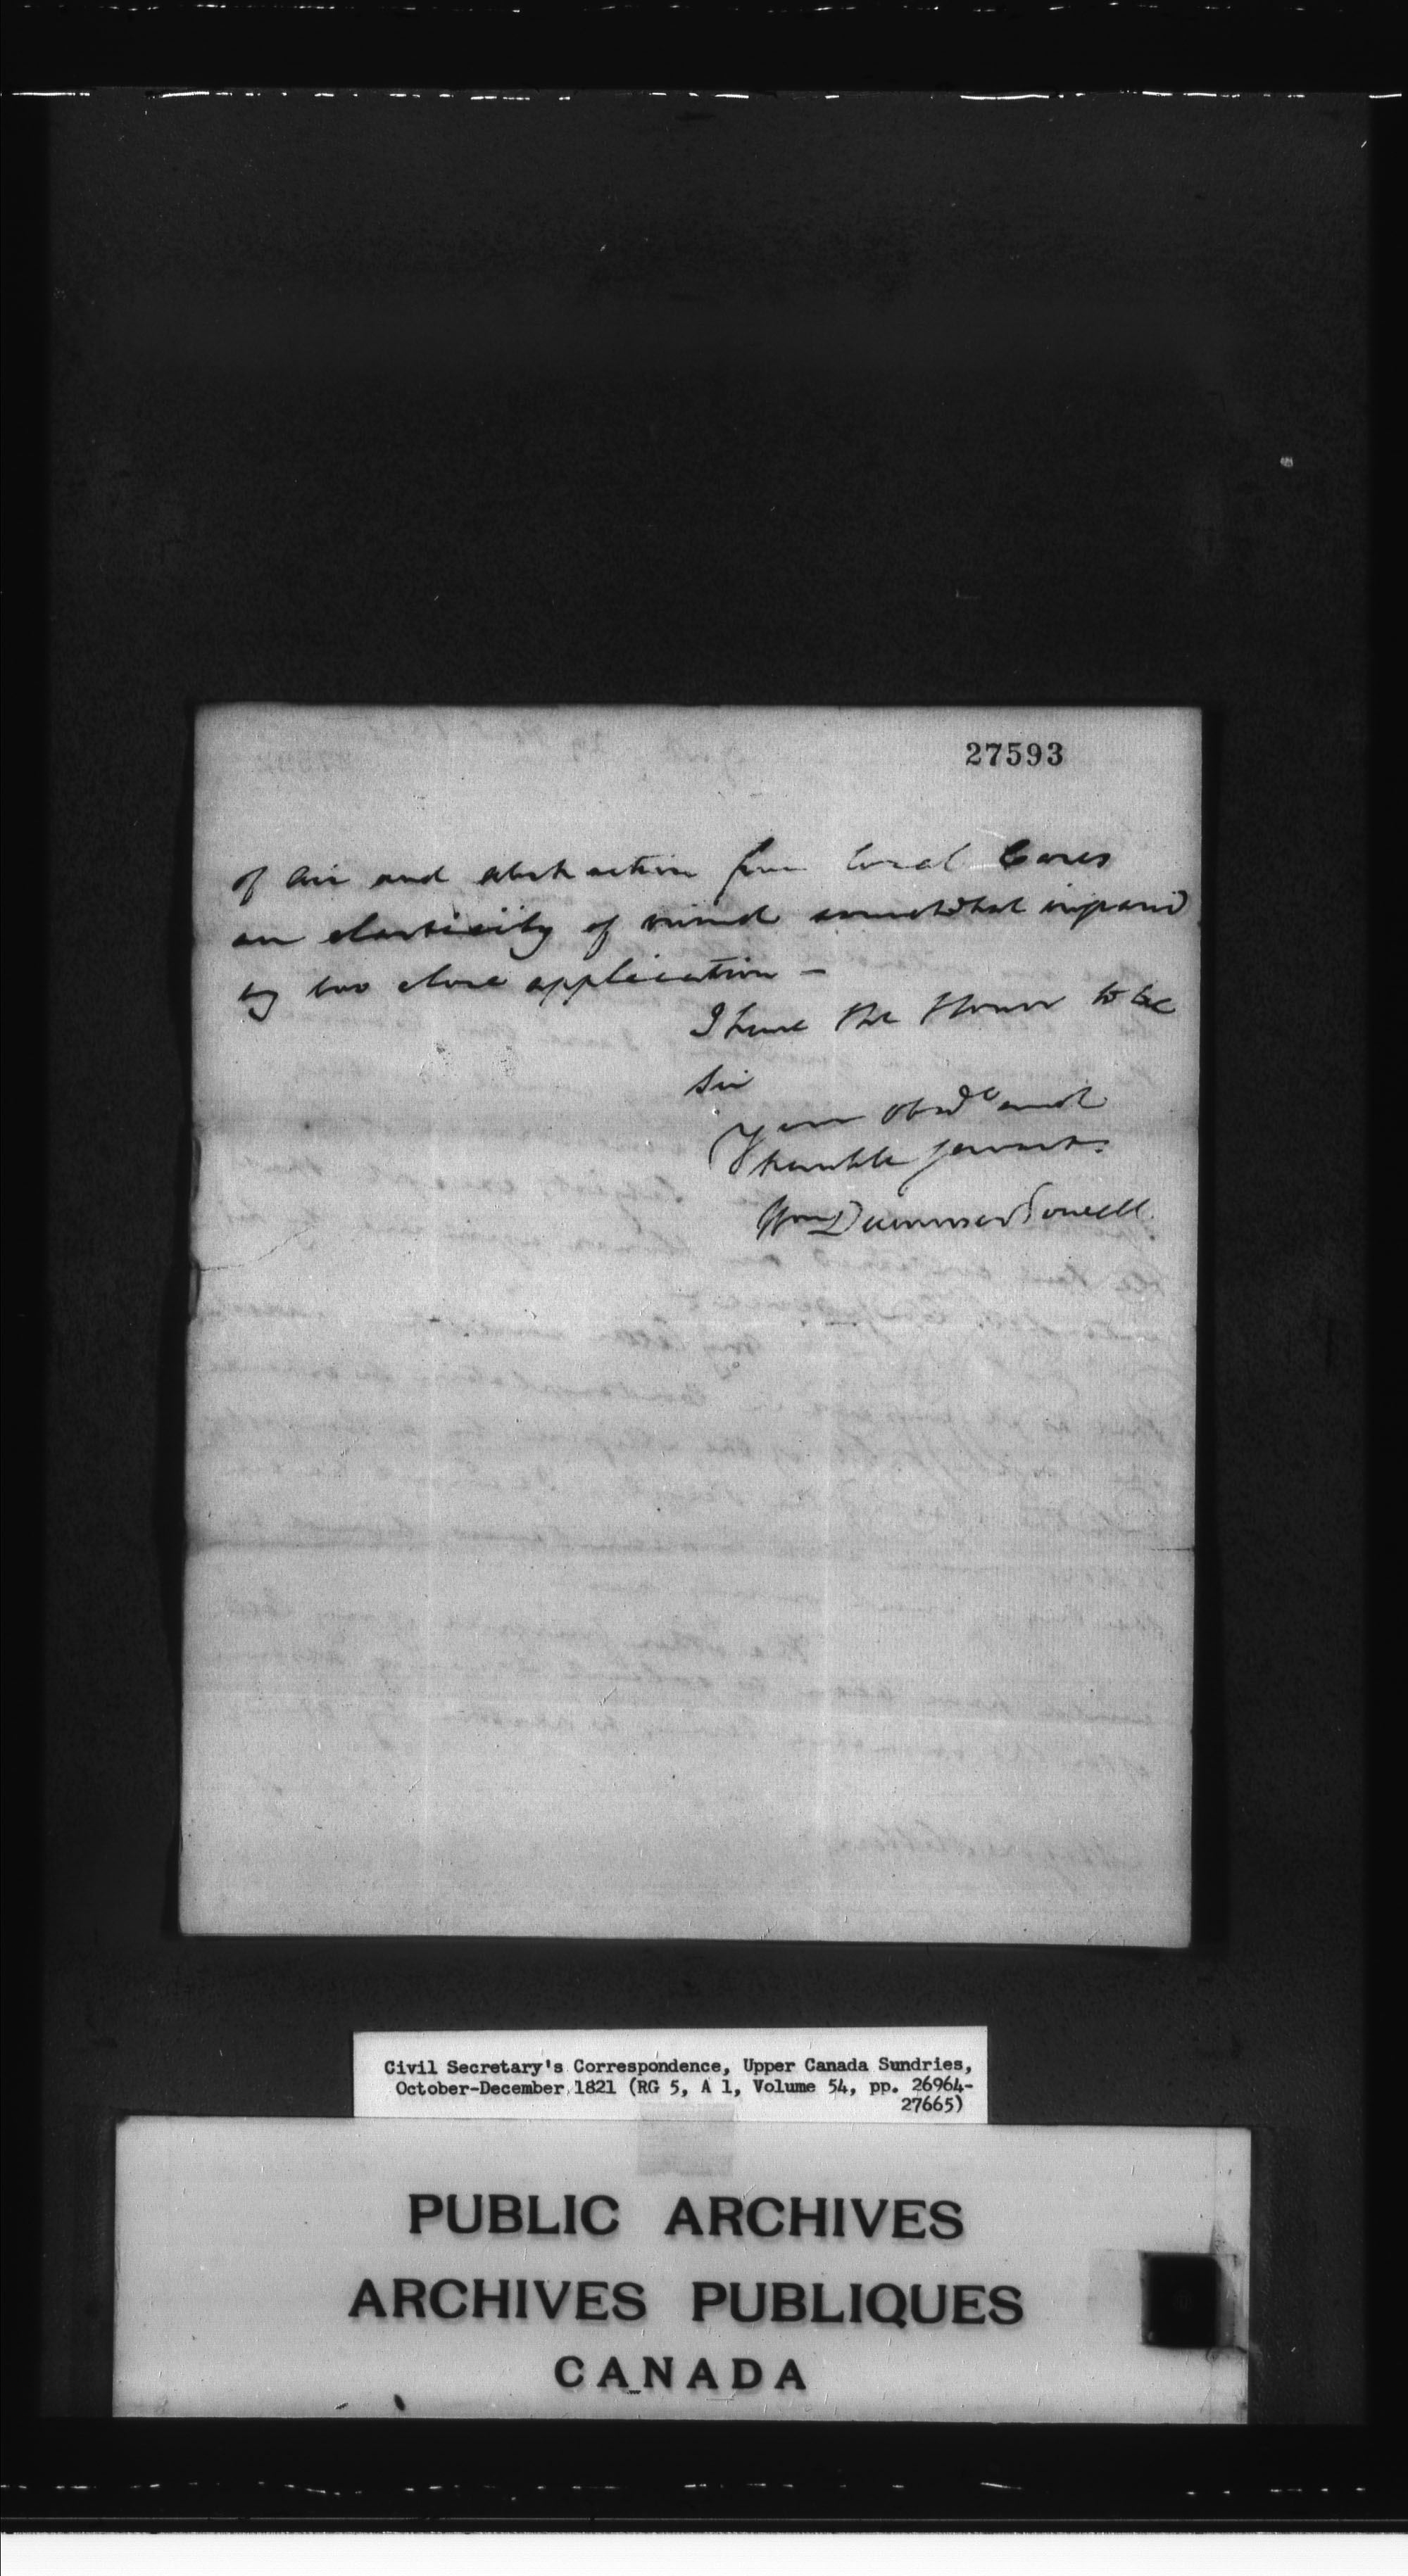 27593
of air and abstraction from local Cares
an elasticity of mind somewhat impaird
by too close application –
I have the Honor to be
Sir
Your obedt and
humble servant
Wm Dummer Powell
Civil Secretary's Correspondence, Upper Canada Sundries,
October-December 1821 (RG 5, A 1, Volume 54, pp. 26964-
27665)
PUBLIC ARCHIVES
ARCHIVES PUBLIQUES
CANADA